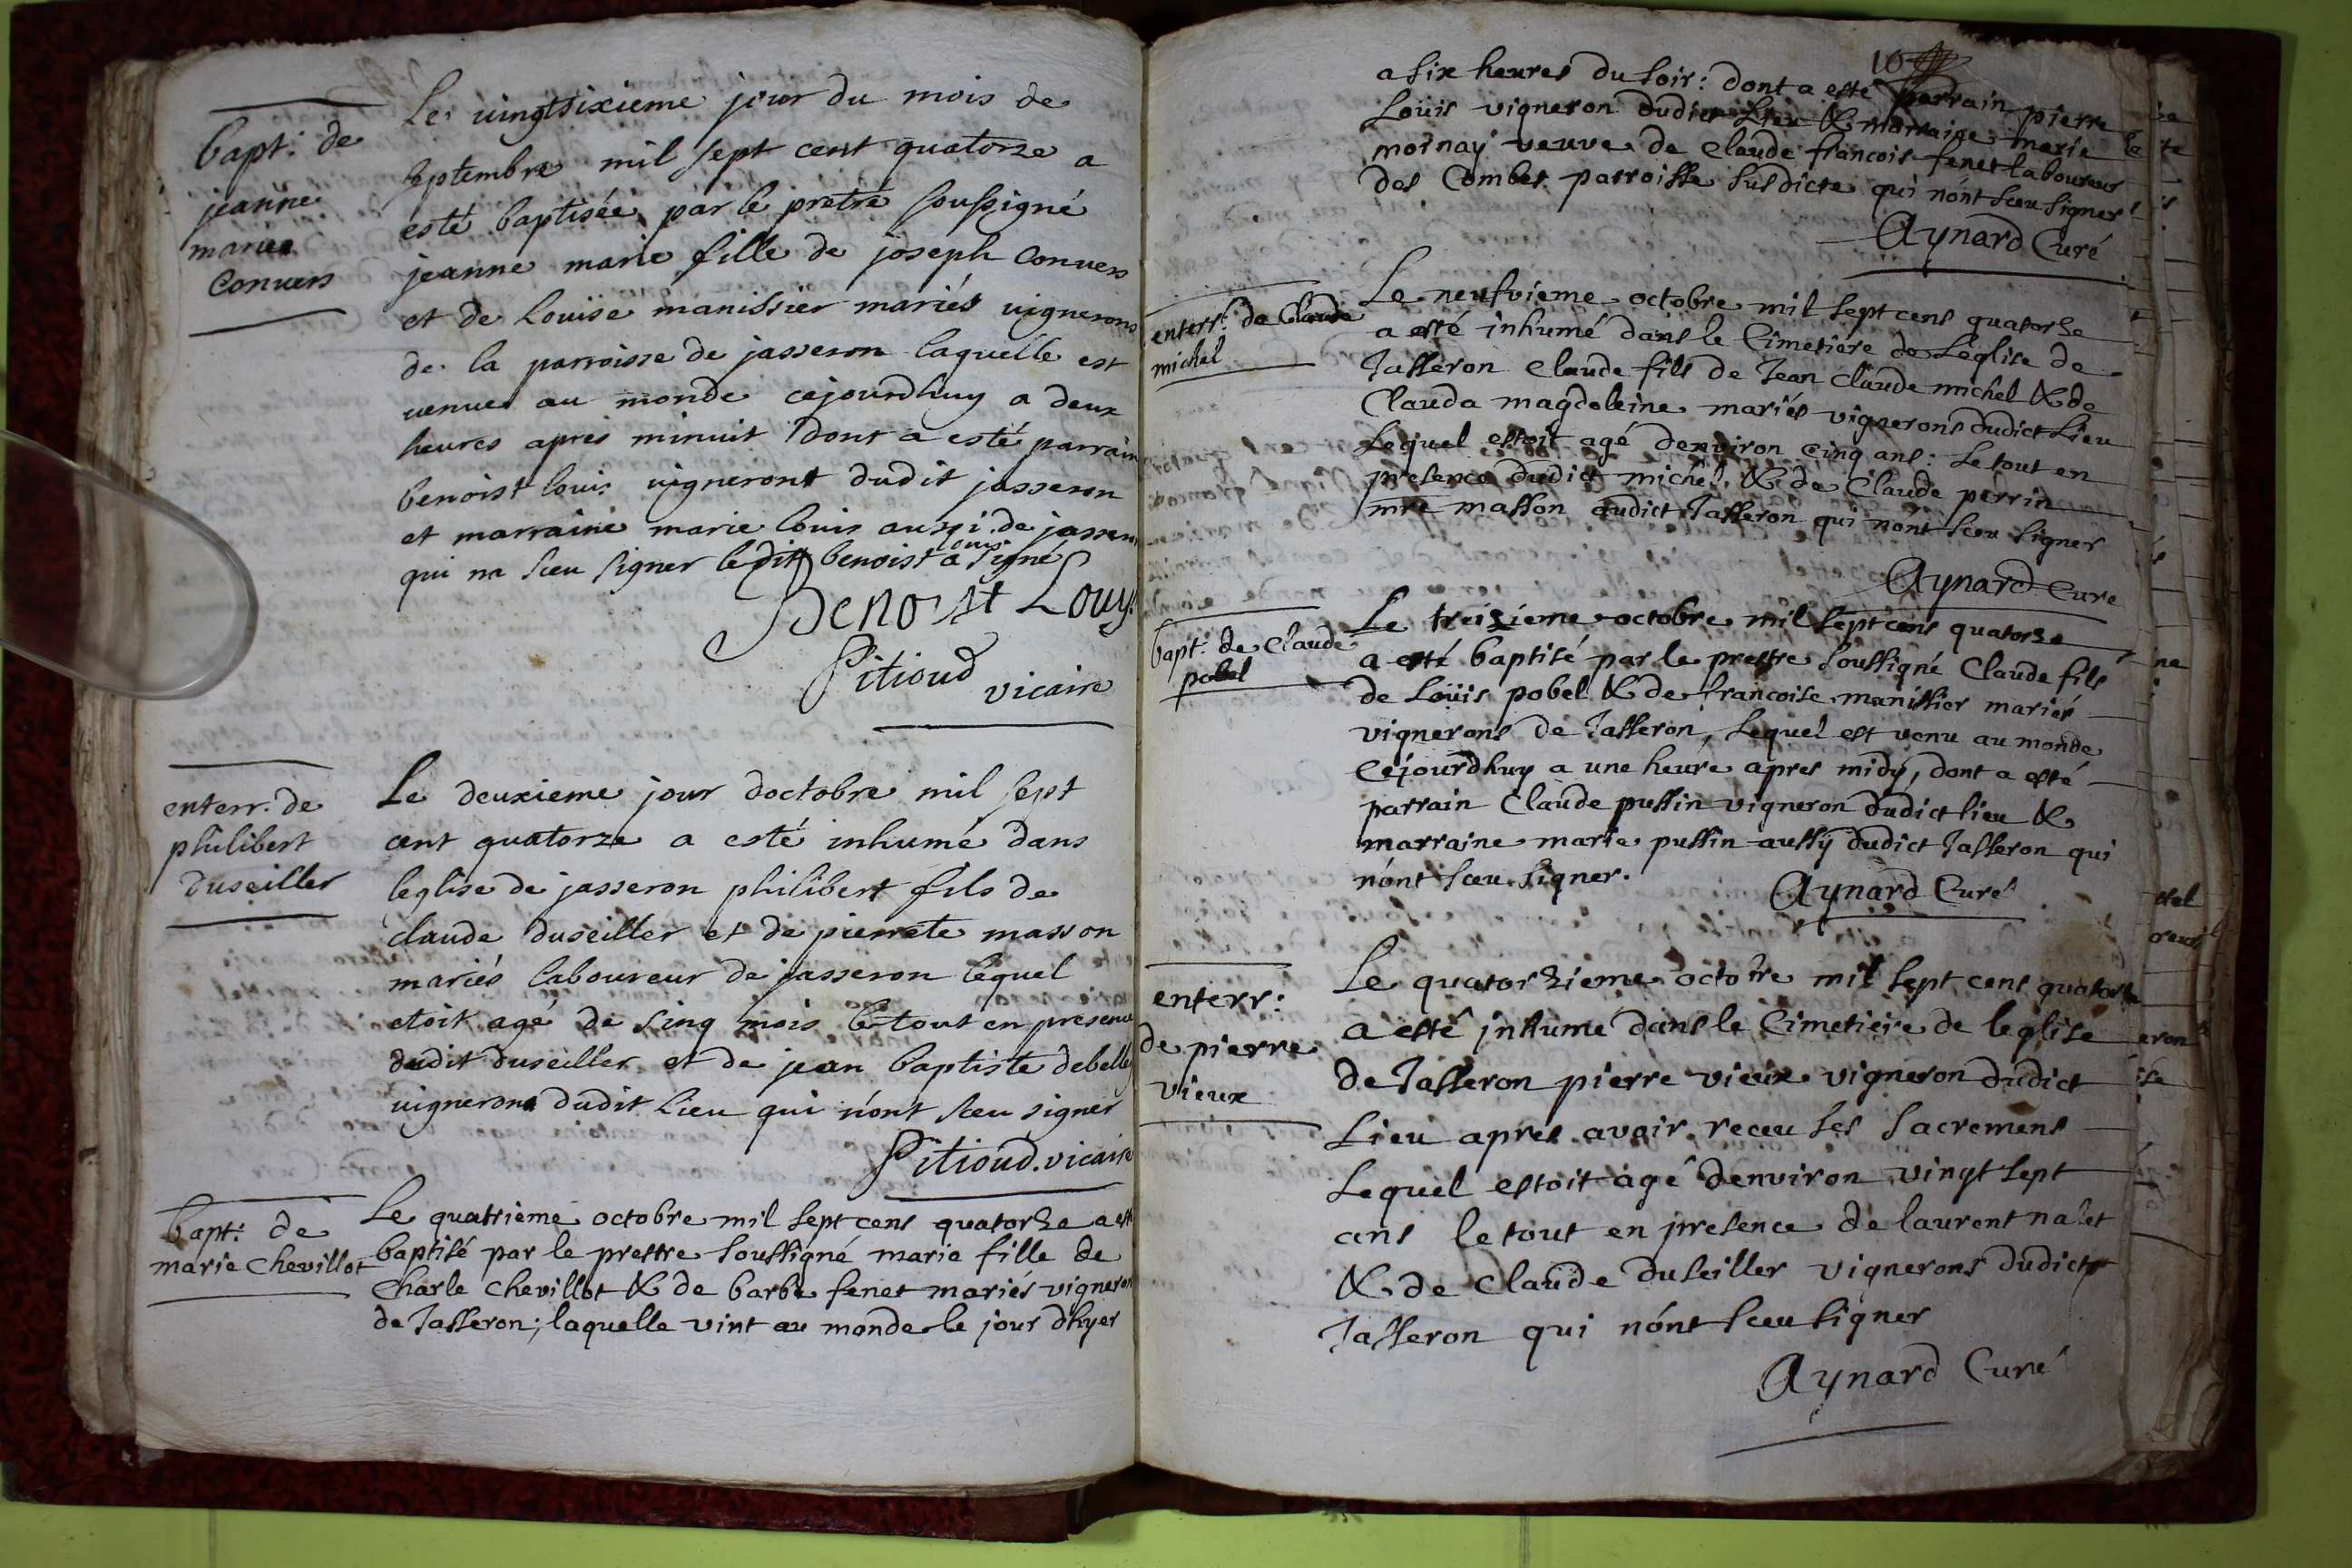 bapt: de
jeanne
marie
Convers
Le vingtsixieme jour du mois de
septembre mil sept cent quatorze a
esté baptisée par le pretre soussigné
jeanne marie fille de joseph Convers
et de Louise manissier mariés vignerons
de la parroisse de jasseron laquelle est
venue au monde cejourdhuy a deux
heures apres minuit dont a esté parrain
benoist louis vigneront dudit jasseron
et marraine marie louis aussi de jasseron
qui na sceu signer ledit benoist louis a signé
Benoist Louys
Pitioud
vicaire
enterr. de
philibert
duseiller
Le deuxieme jour doctobre mil sept
cent quatorze a esté inhumé dans
leglise de jasseron philibert fils de
claude duseiller et de pierrete masson
mariés laboureur de jasseron lequel
etoit agé de sinq mois le tout en presence
dudit duseiller et de jean baptiste debelley
vignerons dudit Lieu qui n'ont sceu signer
Pitioud. vicaire
bapt: de
marie Chevillot
Le quatrieme octobre mil sept cens quatorze a esté
baptisé par le prestre soussigné marie fille de
Charle Chevillot & de barbe fenet mariés vignerons
de Jasseron; laquelle vint au monde le jour dhyer
16
a six heures du soir: dont a esté parrain pierre
Loüis vigneron dudict Lieu & marraine marie
moinay veuve de Claude francois fenet laboureur
des Combes parroisse susdicte qui n'ont sceu signer
Aynard Curé
enterr: de Claude
michel
Le neufvieme octobre mil sept cens quatorze
a esté inhumé dans le Cimetiere de Leglise de
Jasseron Claude fils de Jean Claude michel & de
Clauda magdeleine mariés vignerons dudict Lieu
Lequel estoit agé denviron cinq ans: Le tout en
presence dudict michel & de Claude perrin
mre masson audict Jasseron qui n'ont sceu signer
Aynard Curé
bapt: de Claude
pobel
Le treizieme octobre mil sept cens quatorze
a esté baptisé par le prestre soussigné Claude fils
de Loüis pobel & de francoise manissier mariés
vignerons de Jasseron, Lequel est venu au monde
Cejourdhuy a une heure apres midy, dont a esté
parrain Claude pussin vigneron dudict lieu &
marraine marie pussin aussy dudict Jasseron qui
n'ont sceu signer.
Aynard Curé
enterr:
de pierre
vieux
Le quatorzieme octobre mil sept cens quatorze
a esté inhumé dans le Cimetiere de leglise
de Jasseron pierre vieux vigneron dudict
Lieu apres avoir receu ses sacremens
Lequel estoit agé denviron vingt sept
ans le tout en presence de laurent nalet
& de Claude duseiller vignerons dudict
Jasseron qui n'ont sceu signer
Aynard Curé